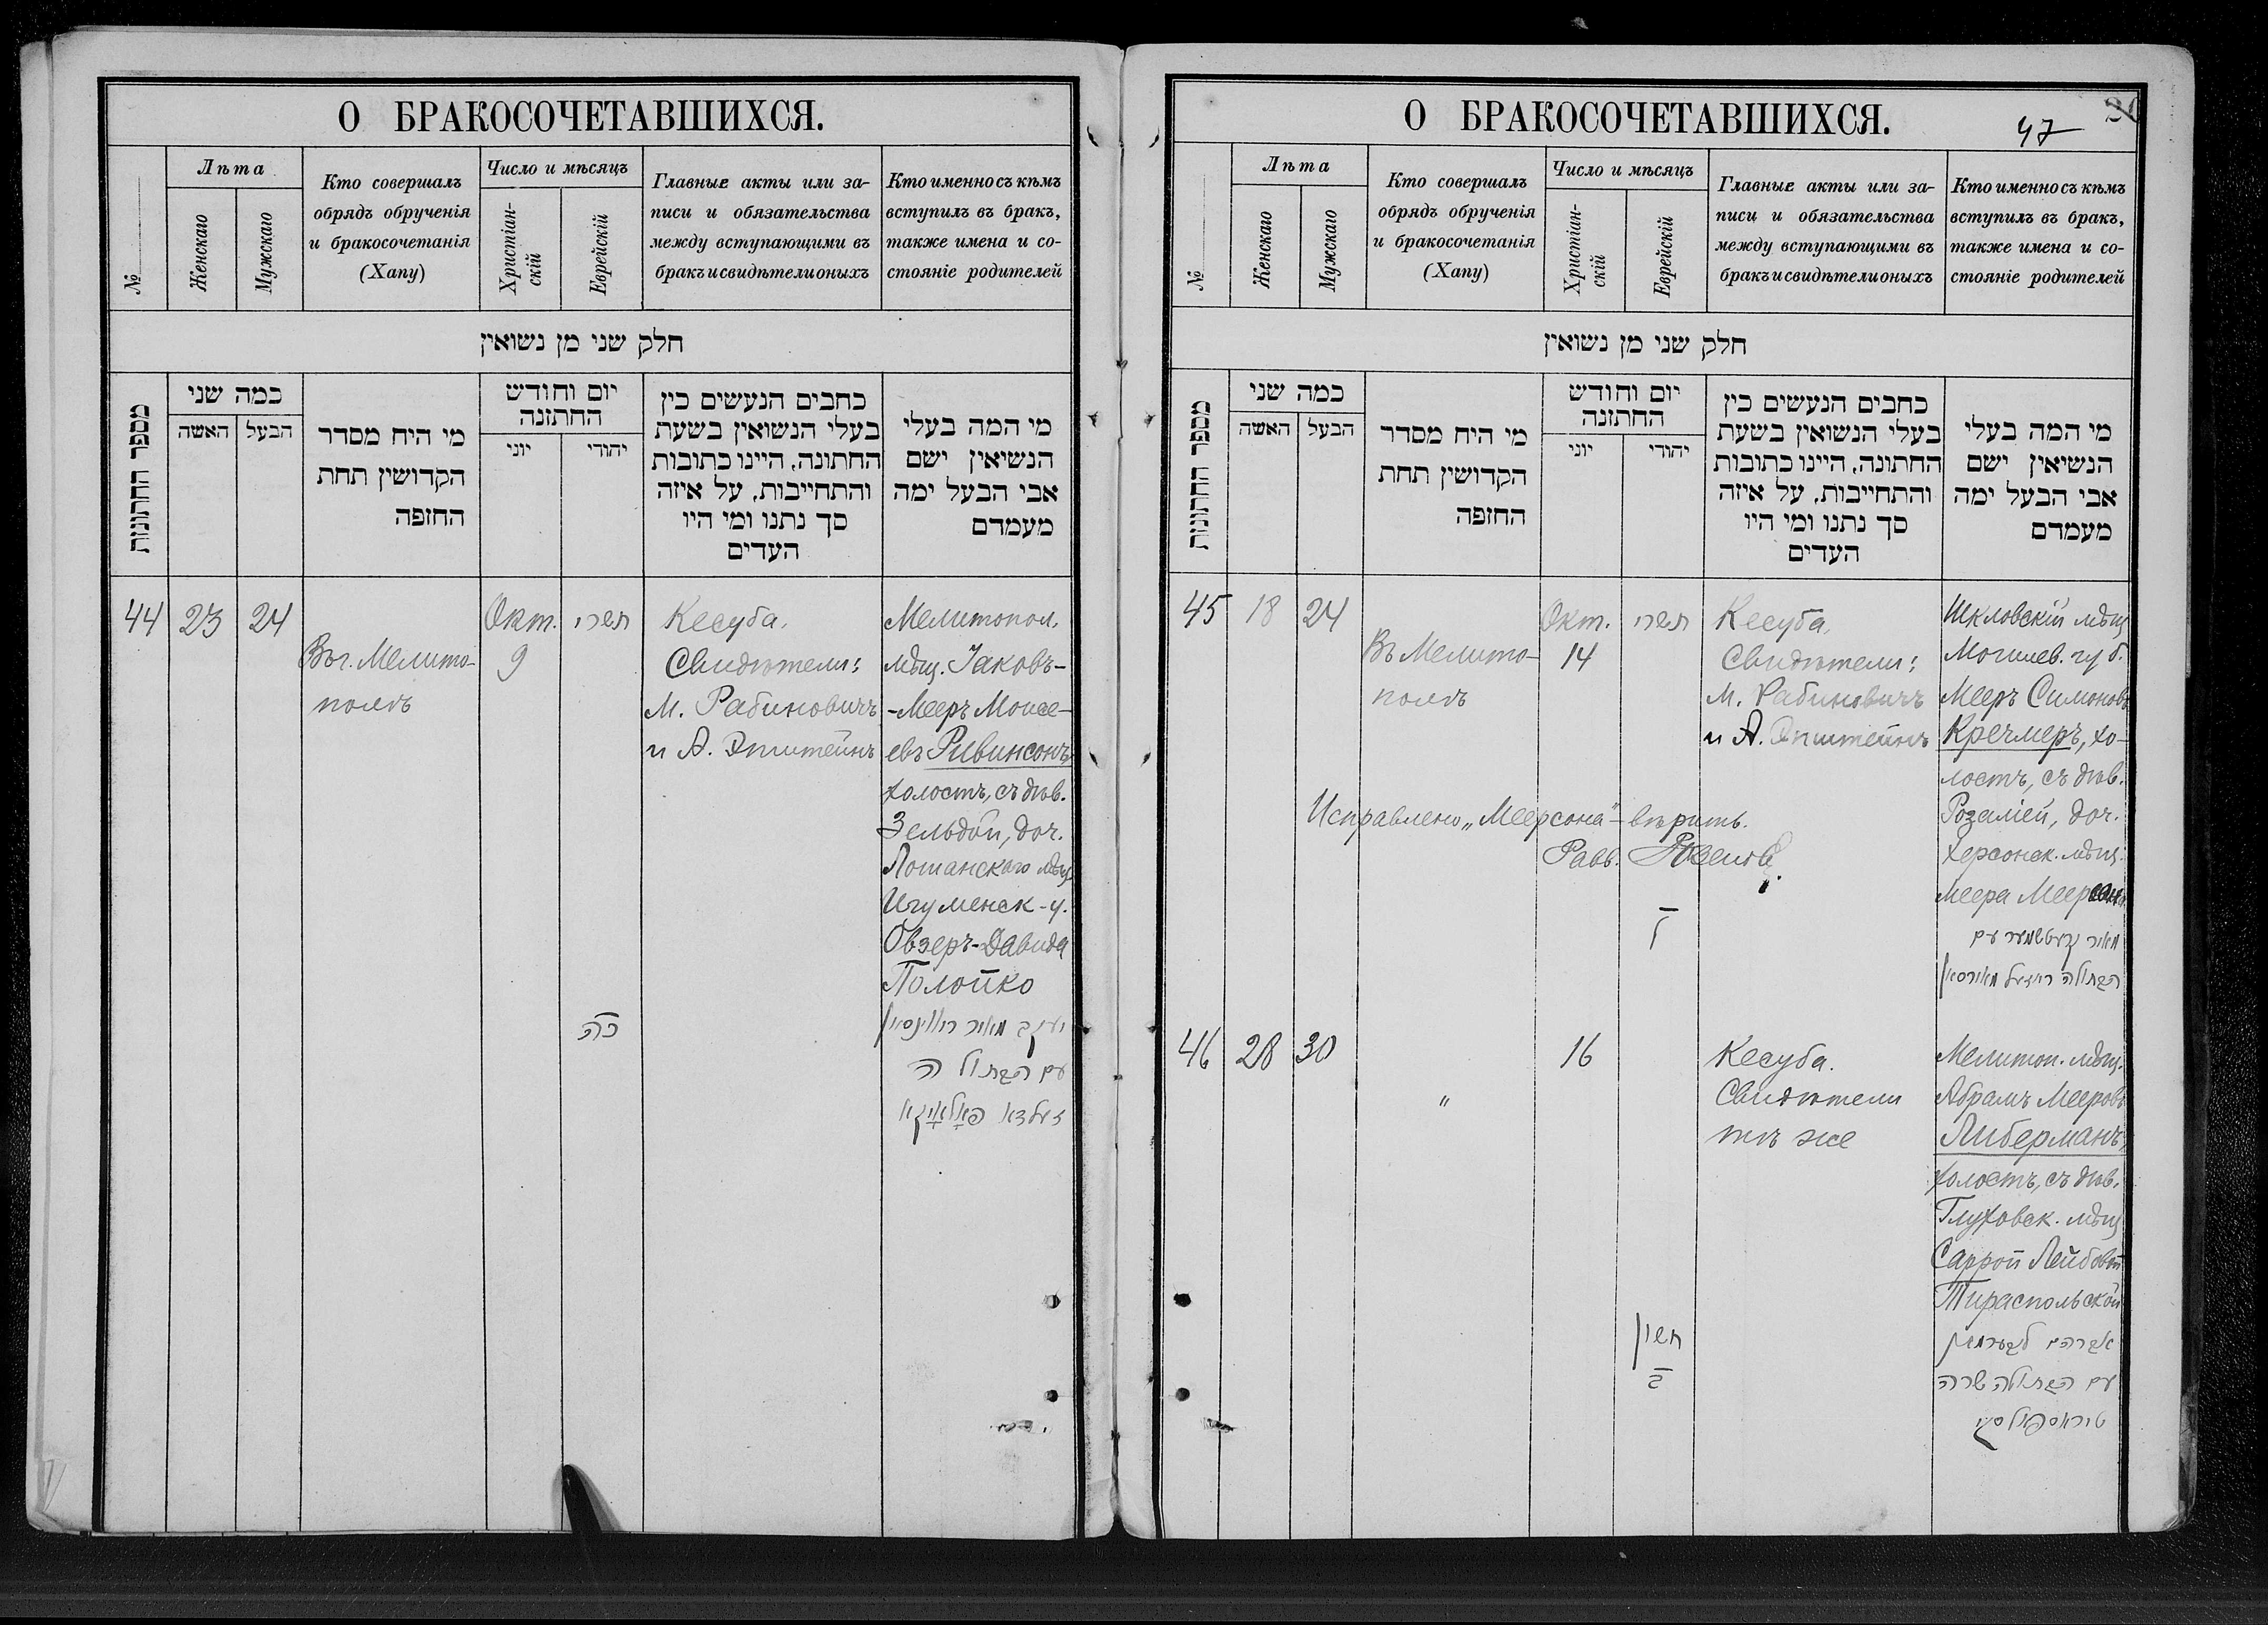 О БРАКОСОЧЕТАВШИХСЯ.
№
Лѣта
Женскаго
Мужскаго
Кто совершалъ
обрядъ обрученія
и бракосочетанія
(Хапу)
Число и мѣсяцъ
Христіан-
скій
Еврейскій
Главные акты или за-
писи и обязательства
между вступающими въ
бракъ и свидѣтели оныхъ
Кто именно съ кѣмъ
вступилъ въ бракъ,
также имена и со-
стояніе родителей
חלק שני מן נשואין
מספר החתונות
כמה שני
האשה
הבעל
מי היח מסדר
הקדושין תחת
החופה
יום וחודש
החתונה
יוני
יהודי
כחבים הנעשים כין
בעלי הנשואין בשעת
החתונה, היינו כתובות
והתחייבות, על איזה
סך נתנו ומי היו
העדים
מי המה בעלי
הנשיאין ישם
אבי הבעל ימה
מעמדם
44
23
24
Въ г. Мелито-
полѣ
Окт.
9
תשרי
כה
Кесуба.
Свидѣтели:
М. Рабиновичъ
и А. Эпштейнъ
Мелитопол.
мѣщ. Іаковъ-
-Мееръ Моисе-
евъ Ривинсонъ,
холостъ, съ дѣв.
Зельдой, доч.
мѣщ.
Игуменск-у.
Овзеръ-Давида
Полойко
יעקב מאיר ריווינסאן
עם הבתולה
זעלדא פאלאיקא
О БРАКОСОЧЕТАВШИХСЯ.
47
№
Лѣта
Женскаго
Мужскаго
Кто совершалъ
обрядъ обрученія
и бракосочетанія
(Хапу)
Число и мѣсяцъ
Христіан-
скій
Еврейскій
Главные акты или за-
писи и обязательства
между вступающими въ
бракъ и свидѣтели оныхъ
Кто именно съ кѣмъ
вступилъ въ бракъ,
также имена и со-
стояніе родителей
חלק שני מן נשואין
מספר החתונות
כמה שני
האשה
הבעל
מי היח מסדר
הקדושין תחת
החופה
יום וחודש
החתונה
יוני
יהודי
כחבים הנעשים כין
בעלי הנשואין בשעת
החתונה, היינו כתובות
והתחייבות, על איזה
סך נתנו ומי היו
העדים
מי המה בעלי
הנשיאין ישם
אבי הבעל ימה
מעמדם
45
18
24
Въ Мелито-
полѣ
Окт.
14
תשרי
ל
Кесуба.
Свидѣтели:
М. Рабиновичъ
и А. Эпштейнъ
Шкловскій мѣщ
Могилев. губ.
Мееръ Симоновъ
Кречмеръ, хо-
лостъ, съ дѣв.
Розаліей, доч.
Херсонск. мѣщ.
Меера Меерсона
מאיר קרעטשמער עם
הבתולה רייזעל מאירסאן
Исправлено „Меерсона“ - вѣрить.
Равв.
46
28
30
"
16
חשון
ב
Кесуба.
Свидѣтели
тѣ же
Мелитоп. мѣщ.
Абрамъ Мееровъ
Либерманъ,
холостъ, съ дѣв.
Глуховск. мѣщ
Саррой Лейбовой
Тираспольской
אברהם ליבערמאן
עם הבתולה שרה
טיראספולסקי